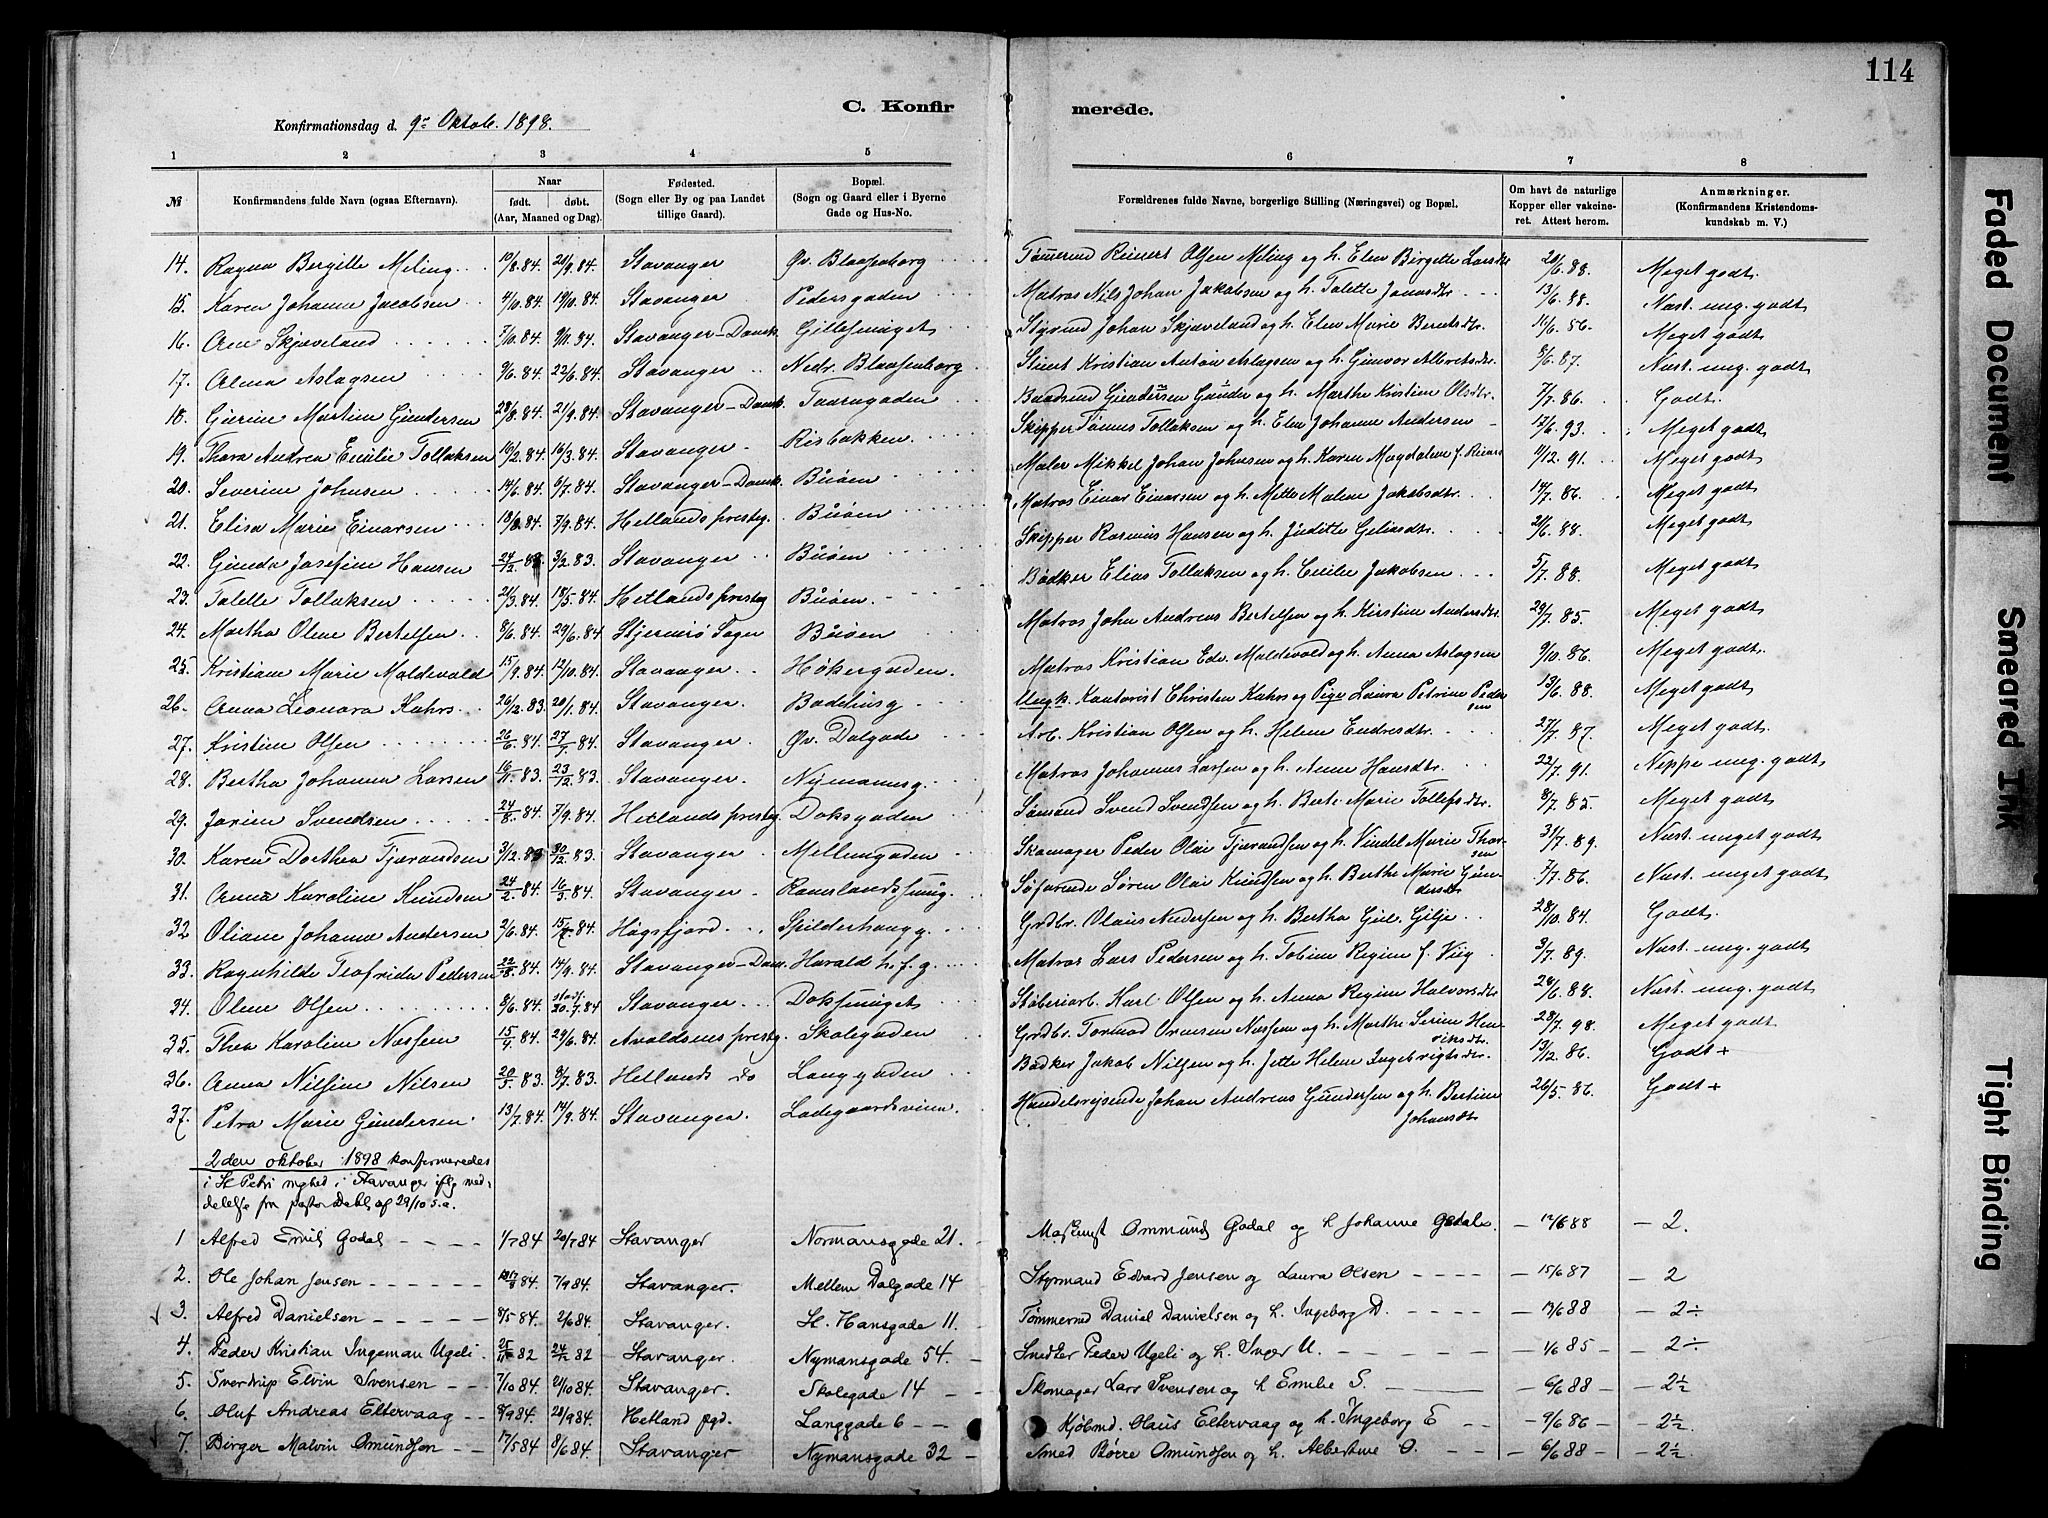 114
C. Konfirmerede.
Konfirmationsdag d. 9de Oktob. 1898.
1 2 3 4 5 6 7 8
№ Konfirmandens fulde Navn (ogsaa Efternavn). Naar født. døbt. (Aar, Maaned og Dag). Fødested. (Sogn eller By og paa Landet tillige Gaard). Bopæl. (Sogn og Gaard eller i Byerne Gade og Hus-No. Forældrenes fulde Navne, borgerlige Stilling (Næringsvei) og Bopæl. Om havt de naturlige Kopper eller vakcineret. Attest herom. Anmærkninger. (Konfirmandens Kristendomskundskab m. V.)
14. Ragna Bergitte Meling 10/8.84. 21/9.84. Stavanger Øv. Blaasenborg Tømmermd Reinert Olsen Meling og h. Elen Birgitte Larsdtr 28/6.88. Meget godt.
15. Karen Johanne Jacobsen 4/10.84. 19/10.84. Stavanger Pedersgaden Matros Nils Johan Jakobsen og h. Talette Jonasdtr. 13/6.88. Næst. mg. godt
16. Ane Skjæveland 7/10.84. 9/11.84. Stavanger-Domk. Gillesmuget Styrmd Johan Skjæveland og h. Elen Marie Berntsdtr. 16/6.86. Meget godt
17. Alma Aslagsen 9/6.84. 22/6.84. Stavanger Nedr. Blaasenborg Stuert Kristian Anton Aslagsen og h. Gunvor Albretsdtr. 8/6.87. Næst. mg. godt
18. Gurine Martine Gundersen 28/8.84. 21/9.84. Stavanger-Domk. Taarngaden Baadsmd Gundersen Gunder og h. Marthe Kristine Olsdtr. 7/7.86. Godt.
19. Thora Andrea Cecilie Tollaksen 10/2.84. 16/3.84. Stavanger Risbakken Skipper Tønnes Tollaksen og h. Elen Johanne Andersen 17/6.93. Meget godt
20. Severine Johnsen 14/6.84. 6/7.84. Stavanger-Domk. Buøen Maler Mikkel Johan Johnsen og h. Karen Magdalene f. 11/12.91. Meget godt
21. Elisa Marie Einarsen 13/8.84. 7/9.84. Hetlands prestg. Buøen Matros Einar Einarsen og h. Mette Malene Jakobsdtr. 14/7.86. Meget godt
22. Gunda Josefine Hansen 24/12.82 3/2.83. Stavanger Buøen Skipper Rasmus Hansen og h. Juditte Geliusdtr. 21/6.88. Meget godt
23. Talette Tollaksen 21/3.84. 18/5.84. Hetlands prestg Buøen Bødker Elias Tollaksen og h. Cecilie Jakobsen 5/7.88. Meget godt
24. Martha Olene Bertelsen 8/6.84. 29/6.84. Stjernerø Sogn Buøen Matros John Andreas Bertelsen og h. Kirstine Andersdtr. 29/7.85. Meget godt
25. Kristiane Marie Maldevald 15/9.84. 12/10.84. Stavanger Høkergaden. Matros Kristian Edv. Maldevald og h. Anna Aslagsen 9/10.86. Meget godt.
26. Anna Leonora Kahrs 26/12.83. 20/1.84. Stavanger. Badehusg. Ungk. Kontorist Christen Kahrs og Pige Laura Petrine Pedersen 13/6.88. Meget godt
27. Kristine Olsen 26/6.84. 27/7.84. Stavanger. Øv. Dalgade Arb. Kristian Olsen og h. Helene Endresdtr. 27/7.87. Meget godt
28. Bertha Johanna Larsen 16/11.83. 23/12.83. Stavanger. Nymannsg. Matros Johannes Larsen og h. Anne Hansdtr. 22/7.91. Neppe mg. godt
29. Jorine Svendsen 24/8.84. 7/9.84. Hetlands prestg Doksgaden Sømand Svend Svendsen og h. Berte Marie Tollefsdtr. 8/7.85. Meget godt
30. Karen Dorthea Tjørandsen 3/12.83 30/12.83. Stavanger. Mellemgaden Skomager Peder Olai Tjørandsen og h. Vindel Marie Thorsen 31/7.89. Næst. meget godt
31. Anna Karoline Knudsen 24/2.84. 16/3.84. Stavanger Ramslandssmug. Søfarende Søren Olai Knudsen og h. Berthe Marie Gundersdtr 7/7.86. Næst. meget godt
32 Oliane Johanne Andersen 2/6.84. 15/7.84. Høgsfjord Spilderhaugg. Grdbr. Olaus Andersen og h. Bertha Giel. Gilje 28/10.84. Godt.
33. Ragnhilde Teofrida Pedersen 22/8.84. 14/9.84. Stavanger-Dom. Harald h.f.g. Matros Lars Pedersen og h. Tobine Regine f. Viig 3/7.89. Næst. mg. godt
34. Olene Olsen 8/6.84. stadf. 20.7.84 Stavanger Doksmuget Støberiarb. Karl Olsen og h. Anna Regine Halvorsdtr 28/6.88. Næst. mg. godt
35. Thea Karoline Næssen 15/4.84. 29/6.84. Avaldsnes prestg. Skolegaden Grdbr. Tormod Ornesen Næssen og h. Marthe Serine Henriksdtr. 28/7.98. Meget godt
36. Anna Nilsine Nilsen 20/5.83. 8/7.83. Hetlands do Langgaden Bødker Jakob Nilsen og h. Jette Helene Ingebrigtsdtr. 13/12.86. Godt +
37. Petra Marie Gundersen 13/7.84. 14/9.84. Stavanger. Ladegaardsveien. Handelsrejsende Johan Andreas Gundersen og h. Bertine Johansdtr 26/5.86. Godt +
2den oktober 1898 konfirmeredes
i St Petri mghed i Stavanger iflg med-
delelse fra pastor Dahl af 29/10 s.a.
1 Alfred Emil Godal 1/7 84 20/7 84 Stavanger Normansgade 21. Maskinist Ommund Godal og h Johanne Godal. 17/6 88 2.
2. Ole Johan Jensen 17/8 84. 7/9 84. Stavanger. Mellem Dalgade 14 Styrmand Edvard Jensen og Laura Olsen 15/6 87 2
3. Alfred Danielsen 8/5 84. 2/6 84. Stavanger. St. Hansgade 11. Tømmermd Daniel Danielsen og h. Ingeborg D. 13/6 88 2÷
4. Peder Kristian Ingeman Ugeli 25/11 82 24/12 82 Stavanger. Nymansgade 54. Smedter Peder Ugeli og h. Inger U. 1/6 85 2÷
5. Sverdrup Elvin Svensen 7/10 84. 21/10 84. Stavanger. Skolegade 14 Skomager Lars Svensen og h Emilie S. 6/6 88 2½
6. Oluf Andreas Eltervaag 8/9 84. 28/9 84. Hetland pgd. Langgade 6 Kjøbmd. Olaus Eltervaag og h. Ingeborg E 9/6 86 2½
7. Birger Malvin Omundsen 17/5 84 8/6 84. Stavanger Nymansgade 32 Smed Børre Omundsen og h. Albertine O. 6/6 88 2½
Faded Document
Smeared Ink
Tight Binding